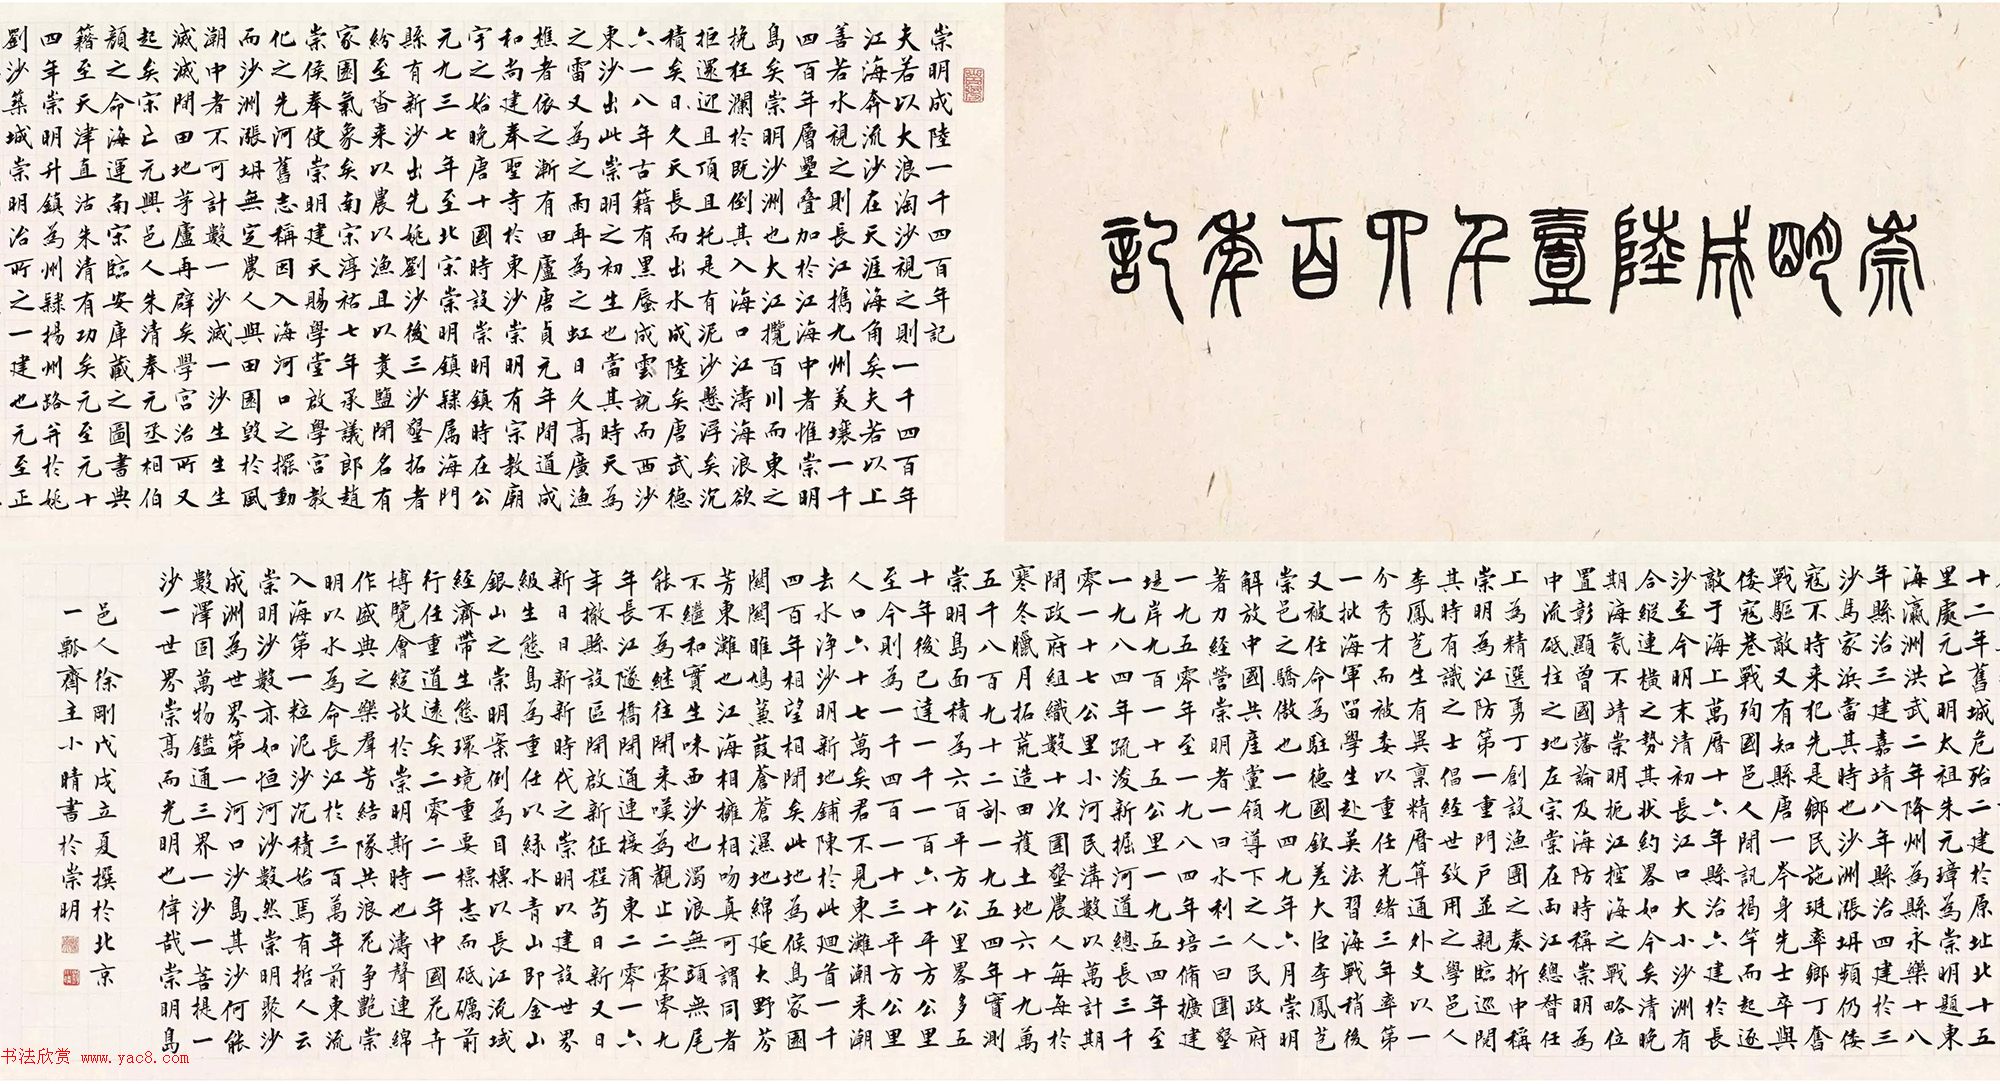 崇明成陸壹千四百年記
崇明成陸一千四百年記
夫若以大浪淘沙視之則一千四百年
江海奔流沙在天涯海角矣夫若以上
善若水視之則長江攜九州美壤一千
四百年層壘疊加於江海中者惟崇明
島矣崇明沙洲也大江攬百川而東之
挽狂瀾於既倒其入海口江濤海浪欲
拒還迎且頂且托是有泥沙懸浮矣沉
積矣日久天長而出水成陸矣唐武德
六一八年古籍有黑蜃成雲說而西沙
東沙出此崇明之初生也當其時天為
之雷又為之雨再為之虹日久高廣漁
樵者依之漸有田廬唐貞元年間道成
和尚建奉聖寺於東沙崇明有宗教廟
宇之始晚唐十國時設崇明鎮時在公
元九三七年至北宋崇明鎮隸属海門
縣有新沙出先姚劉沙後三沙墾拓者
紛至沓來以農以漁且以煑鹽聞名有
家園氣象矣南宋淳祐七年承議郎趙
崇侯奉使崇明建天賜學堂啟學宮教
化之先河舊志稱因入海河口之擺動
而沙洲漲坍無定農人與田園毀於風
潮中者不可計數一沙滅一沙生生生
滅滅間田地茅廬再辟矣學宮治所又
起矣宋亡元興邑人朱清奉元丞相伯
顏之命海運南宋臨安庫藏之圖書典
籍至天津直沽朱清有功矣元至元十
四年崇明升鎮為州隸揚州路并於姚
劉沙築城崇明治所之一建也元至正
十二年舊城危殆二建於原址北十五
里處元亡明太祖朱元璋為崇明題東
海瀛洲洪武二年降州為縣永樂十八
年縣治三建嘉靖八年縣治四建於三
沙馬家浜當其時也沙洲漲坍頻仍倭
寇不時来犯先是鄉民施珽率鄉丁奮
戰驅敵又有知縣唐一岑身先士卒與
倭寇巷戰殉國邑人聞訊揭竿而起逐
敵于海上萬曆十六年縣治六建於長
沙至今明末清初長江口大小沙洲有
合縱連橫之勢其狀約畧如今矣清晚
期海氛不靖崇明扼江控海之戰略位
置彰顯曾國藩論及海防時稱崇明為
中流砥柱之地左宗棠在两江總督任
上為精選勇丁創設漁團之奏折中稱
崇明為江防第一重門戶並親臨巡閱
其時有識之士倡經世致用之學邑人
李鳳苞生有異稟精曆算通外文以一
介秀才而被委以重任光緒三年率第
一批海軍留學生赴英法習海戰稍後
又被任命為駐德國欽差大臣李鳳苞
崇邑之驕傲也一九四九年六月崇明
解放中國共產黨領導下之人民政府
著力經營崇明者一曰水利二曰圍墾
一九五零年至一九八四年培脩擴建
堤岸九百一十五公里一九五四年至
一九八四年疏浚新掘河道總長三千
零一十七公里小河民溝數以萬計期
間政府組織數十次圍墾農人每每於
寒冬臘月拓荒造田獲土地六十九萬
五千八百九十二畝一九五四年實測
崇明島面積為六百平方公里畧多五
十年後已達一千一百六十平方公里
至今則為一千四百一十三平方公里
人口六十七萬矣君不見東灘潮来潮
去水净沙明新地鋪陳於此廻首一千
四百年相望相聞矣此地為候鳥家園
關關雎鳩蒹葭蒼蒼濕地綿延大野芬
芳東灘也江海相擁相吻真可謂同者
不繼和實生味西沙也濁浪無頭無尾
能不為継往開来嘆為觀止二零零九
年長江隧橋開通連接浦東二零一六
年撤縣設區開啟新征程苟日新又日
新日日新新時代之崇明以建設世界
級生態島為重任以綠水青山即金山
銀山之崇明案例為目標以長江流域
經濟帶生態環境重要標志而砥礪前
行任重道遠矣二零二一年中國花卉
博覽會綻放於崇明斯時也濤聲連綿
作盛典之樂羣芳結隊共浪花爭艷崇
明以水為命長江於三百萬年前東流
入海第一粒泥沙沉積始焉有哲人云
崇明沙數亦如恒河沙數然崇明聚沙
成洲為世界第一河口沙島其沙何能
數澤囙萬物鑑通三界一沙一菩提一
沙一世界崇高而光明也偉哉崇明島
邑人徐剛戊戌立夏撰於北京
一瓢齋主小晴書於崇明
书法欣赏 www.yac8.com